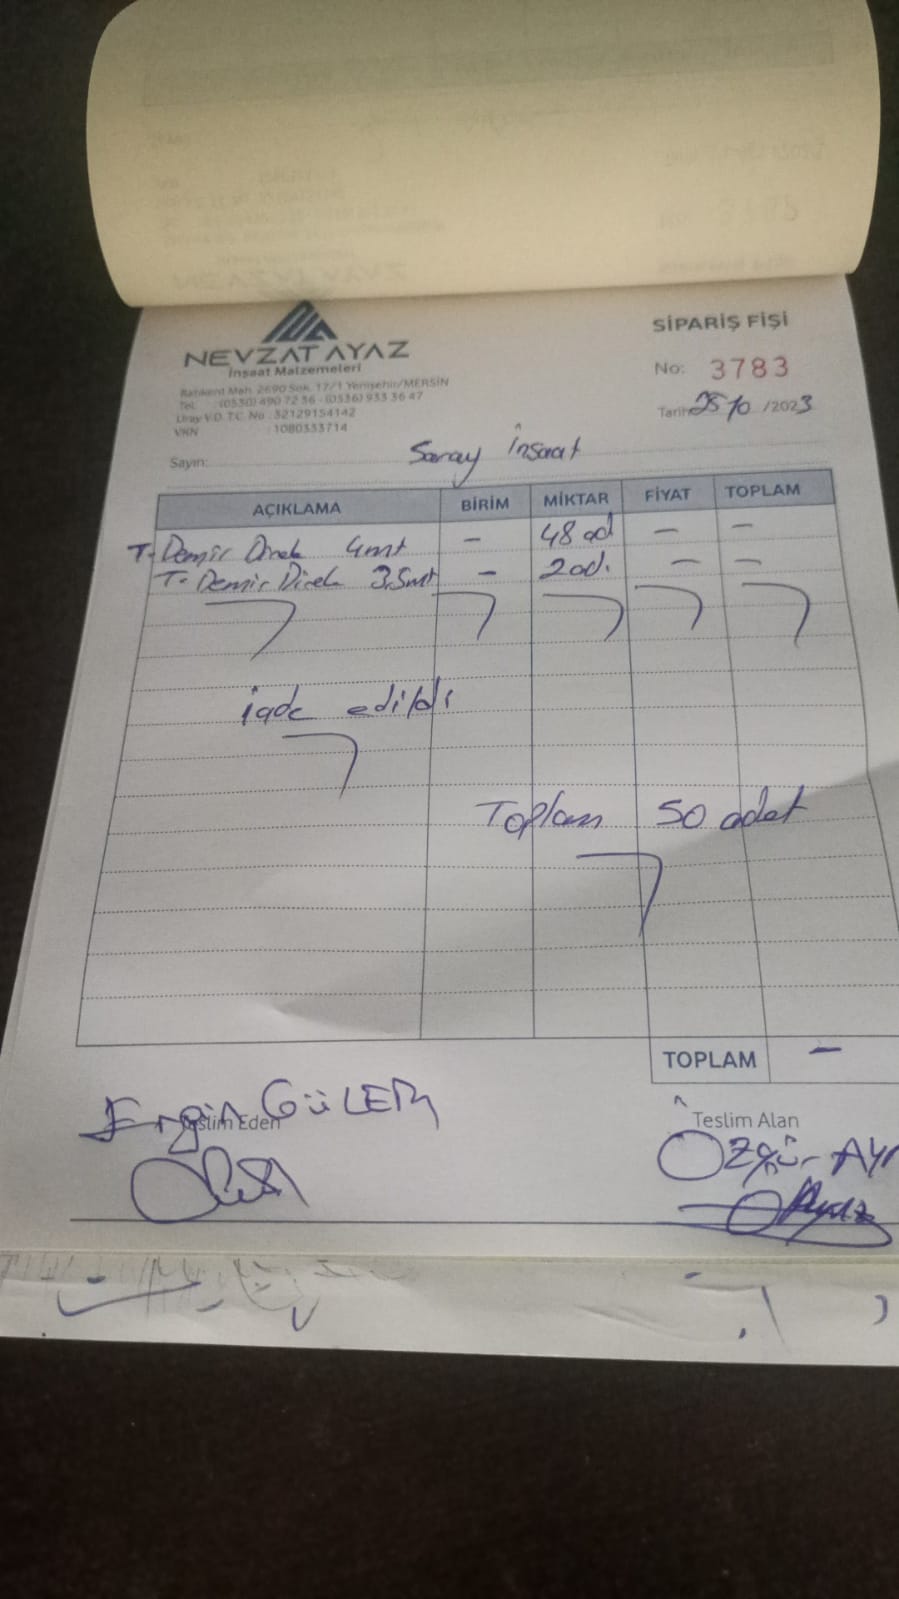 NEVZAT AYAZ
İnşaat Malzemeleri
Batıkent Mah. 2690 Sok. 17/1 Yenişehir/MERSİN
Tel. : (0530) 490 72 36 - (0536) 933 36 47
Uray V.D. T.C. No : 32129154142
VKN : 1080333714
SİPARİŞ FİŞİ
No: 3783
Tarih: 25/10/2023
Sayın: Saray İnşaat
AÇIKLAMA BİRİM MİKTAR FİYAT TOPLAM
T. Demir Direk 4mt - 48 ad - -
T. Demir Direk 3.5mt - 2 ad. - -
iade edildi
Toplam 50 adet
TOPLAM -
Teslim Eden
Ergin GÜLER
Teslim Alan
Özgür